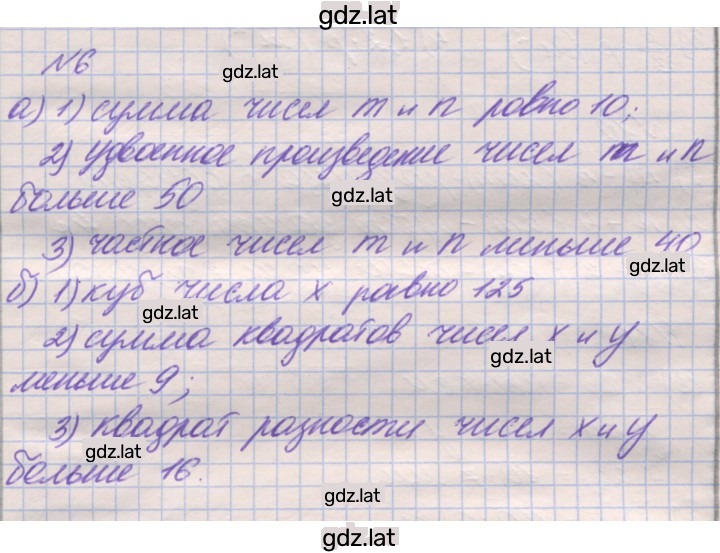 gdz.lat
№6
gdz.lat
а) 1) сумма чисел m и n равно 10;
2) удвоенное произведение чисел m и n
больше 50
gdz.lat
3) частное чисел m и n меньше 40
gdz.lat
б) 1) куб числа x равно 125
gdz.lat
2) сумма квадратов чисел x и y
gdz.lat
меньше 9;
3) квадрат разности чисел x и y
gdz.lat
больше 16.
gdz.lat
gdz.lat